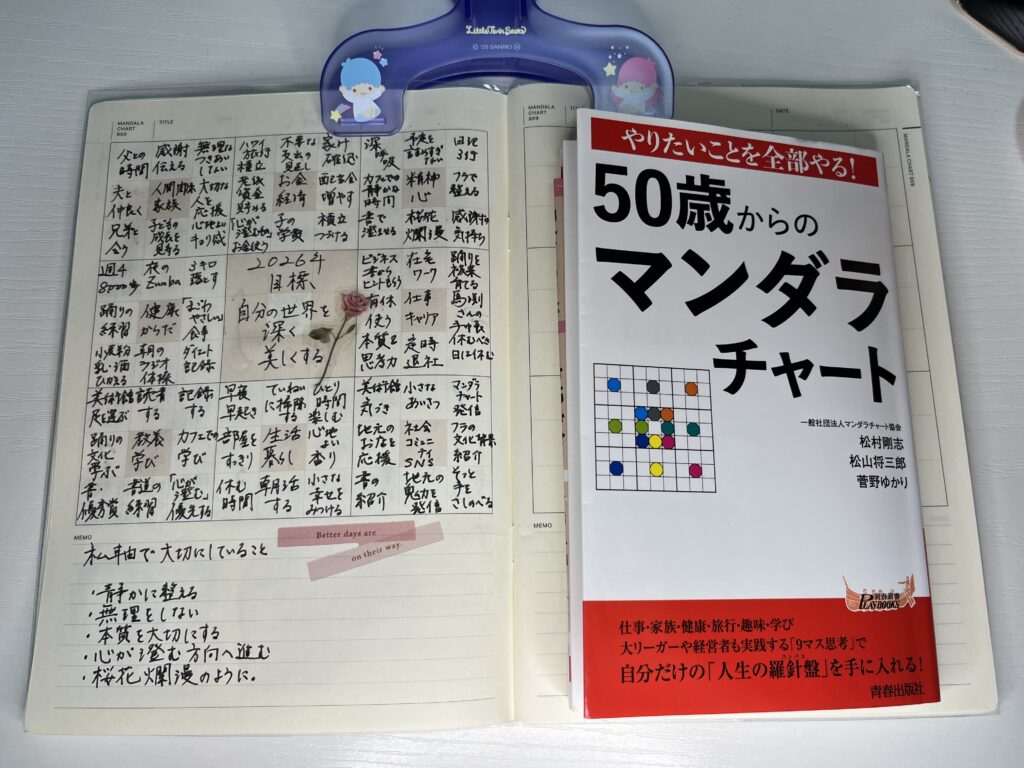 Little Twin Stars
© '25 SANRIO
MANDALA
CHART
9X9
TITLE
父との
時間
感謝
伝える
無理な
つきあい
しない
ハワイ
旅行
積立
不要な
支出の
見直し
家計
確認
深呼吸
予定を
詰めすぎ
ない
日記
3行
夫と
仲良く
人間関係
家族
大切な
人を
応援
老後
資金
貯める
お金
経済
配当金
増やす
カフェでの
静かな
時間
精神
心
フラで
整える
兄弟と
会う
子どもの
成長を
見守る
心地よい
キョリ感
「心が
澄むもの」
お金使う
子の
学費
積立
つづける
書で
澄ませる
桜花
爛漫
感謝の
気持ち
週4
8000歩
夜の
Zumba
3キロ
落とす
2026年
目標
ビジネス
本から
ヒントもらう
在宅
ワーク
踊りの
練習
健康
からだ
食事
自分の世界を
深く
美しくする
有休
使う
仕事
キャリア
小麦粉
乳・酒
ひかえる
朝の
ラジオ
体操
ダイエット
記録
本質を
思考力
定時
退社
休むべき
日は休む
美術館
足を運ぶ
読書
する
記録
する
早寝
早起き
ていねい
に掃除
する
ひとり
時間
楽しむ
美術館
気づき
小さな
あいさつ
マンダラ
チャート
発信
踊りの
文化
学ぶ
教養
学び
カフェでの
学び
部屋を
すっきり
生活
暮らし
心地
よい
香り
地元の
お店を
応援
社会
コミュニ
ティ
SNS
フラの
文化背景
紹介
書
優秀賞
書道の
練習
「心が
澄む」
優先する
休む
時間
朝活
する
小さな
幸せを
みつける
書の
紹介
地元の
魅力を
発信
そっと
手を
さしのべる
MEMO
私軸で大切にしていること
Better days are
on their way.
・静かに整える
・無理をしない
・本質を大切にする
・心が澄む方向へ進む
・桜花爛漫のように。
MANDALA
CHART
9X9
DATE
MANDALA
CHART
9X9
MEMO
やりたいことを全部やる!
50歳からの
マンダラ
チャート
一般社団法人マンダラチャート協会
松村剛志
松山将三郎
菅野ゆかり
青春新書
PLAYBOOKS
仕事・家族・健康・旅行・趣味・学び
大リーガーや経営者も実践する「9マス思考」で
自分だけの「人生の羅針盤」を手に入れる!
コンパス
青春出版社